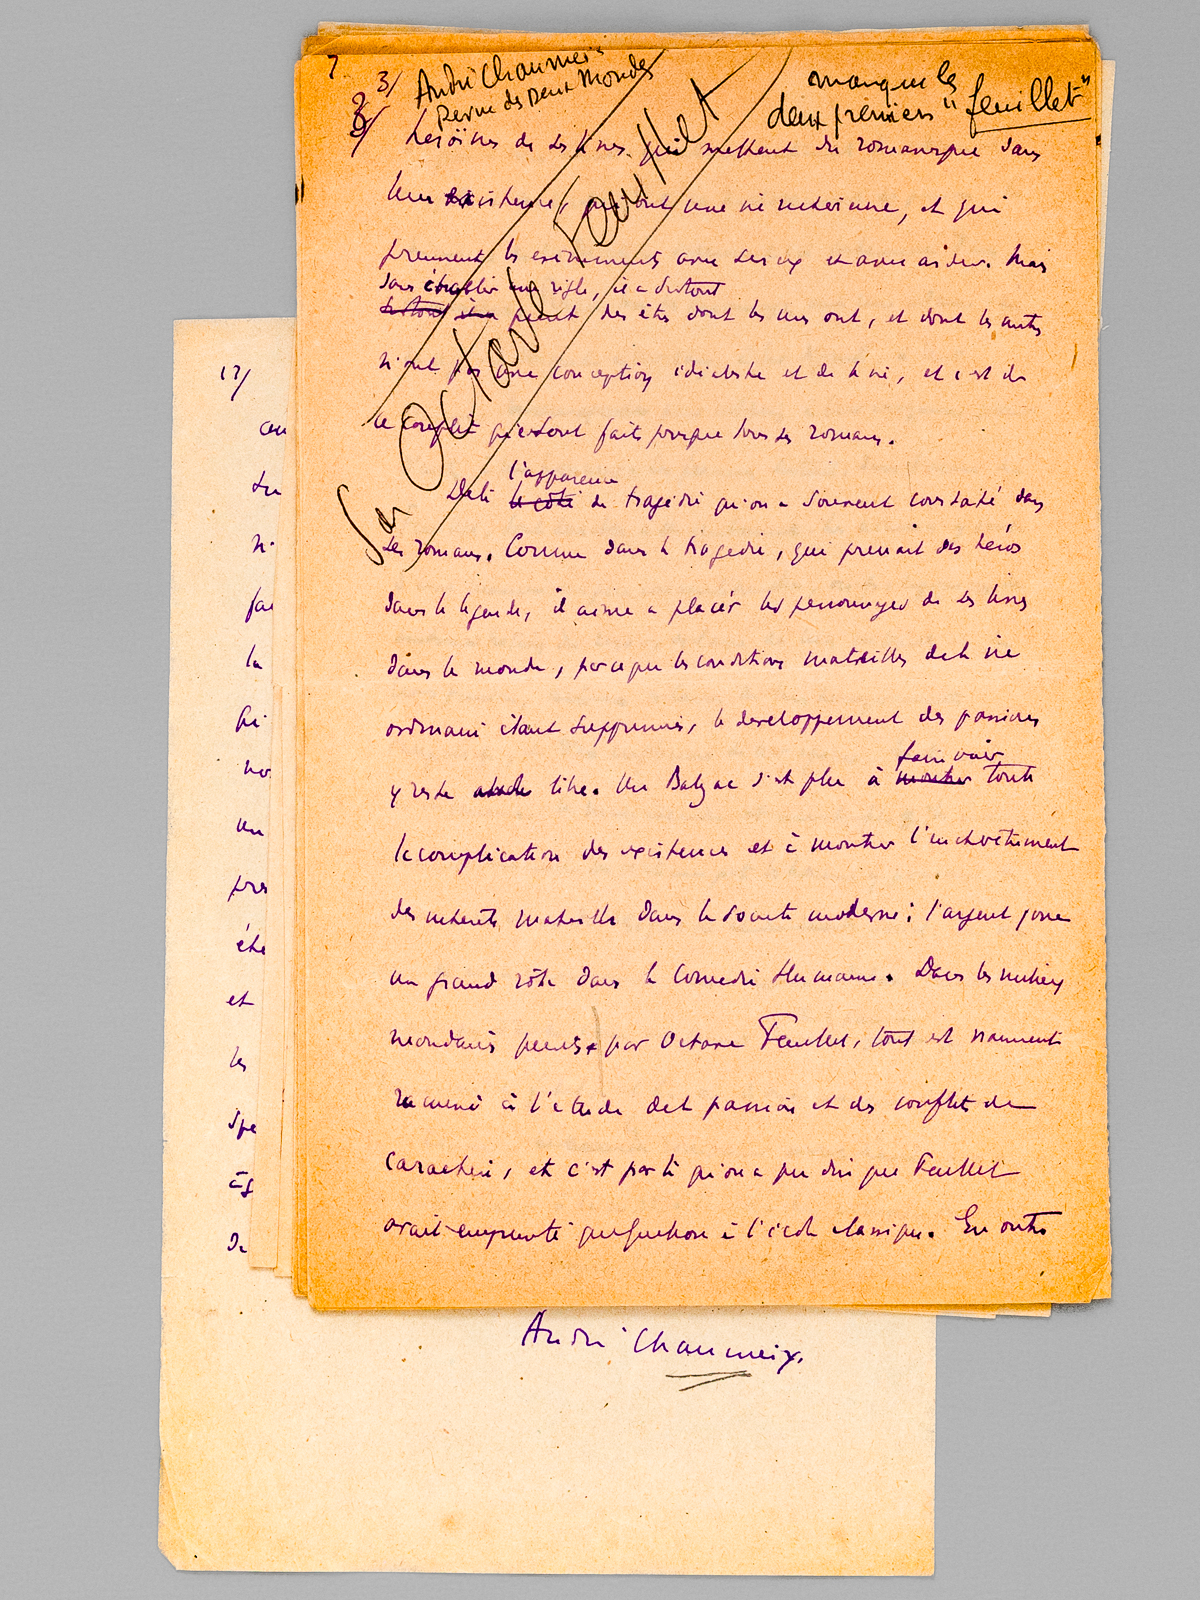 7
3/ André Chaumeix
Revue des Deux Mondes
manque les
deux premiers "feuillet"
3/
Sur Octave Feuillet
héroïnes de ses livres qui mettent du romanesque dans
leur existence, qui ont une vie intérieure, et qui
prennent les événements avec sérieux et avec ardeur. Mais
sans établir une règle, il a surtout
peint des êtres dont les uns ont, et dont les autres
n'ont pas une conception idéaliste et de la vie, et c'est de
ce conflit que sont faits presque tous ses romans.
De là l'apparence le côté de tragédie qu'on a souvent constaté dans
ses romans. Comme dans la tragédie, qui prenait des héros
dans la légende, il aime à placer les personnages de ses livres
dans le monde, parce que les conditions matérielles de la vie
ordinaire étant supprimées, le développement des passions
y reste libre. Un Balzac s'est plu à faire voir montrer toute
la complication des existences et à montrer l'enchevêtrement
des intérêts matériels dans la société moderne ; l'argent joue
un grand rôle dans la Comédie Humaine. Dans les milieux
mondains peints par Octave Feuillet, tout est vraiment
ramené à l'étude de la passion et des conflits de
caractère, et c'est par là qu'on a pu dire que Feuillet
avait emprunté quelque chose à l'école classique. En outre
17/
au
su
n'
fai
la
qui
no
un
pres
été
et
les
spe
ag
de
André Chaumeix.